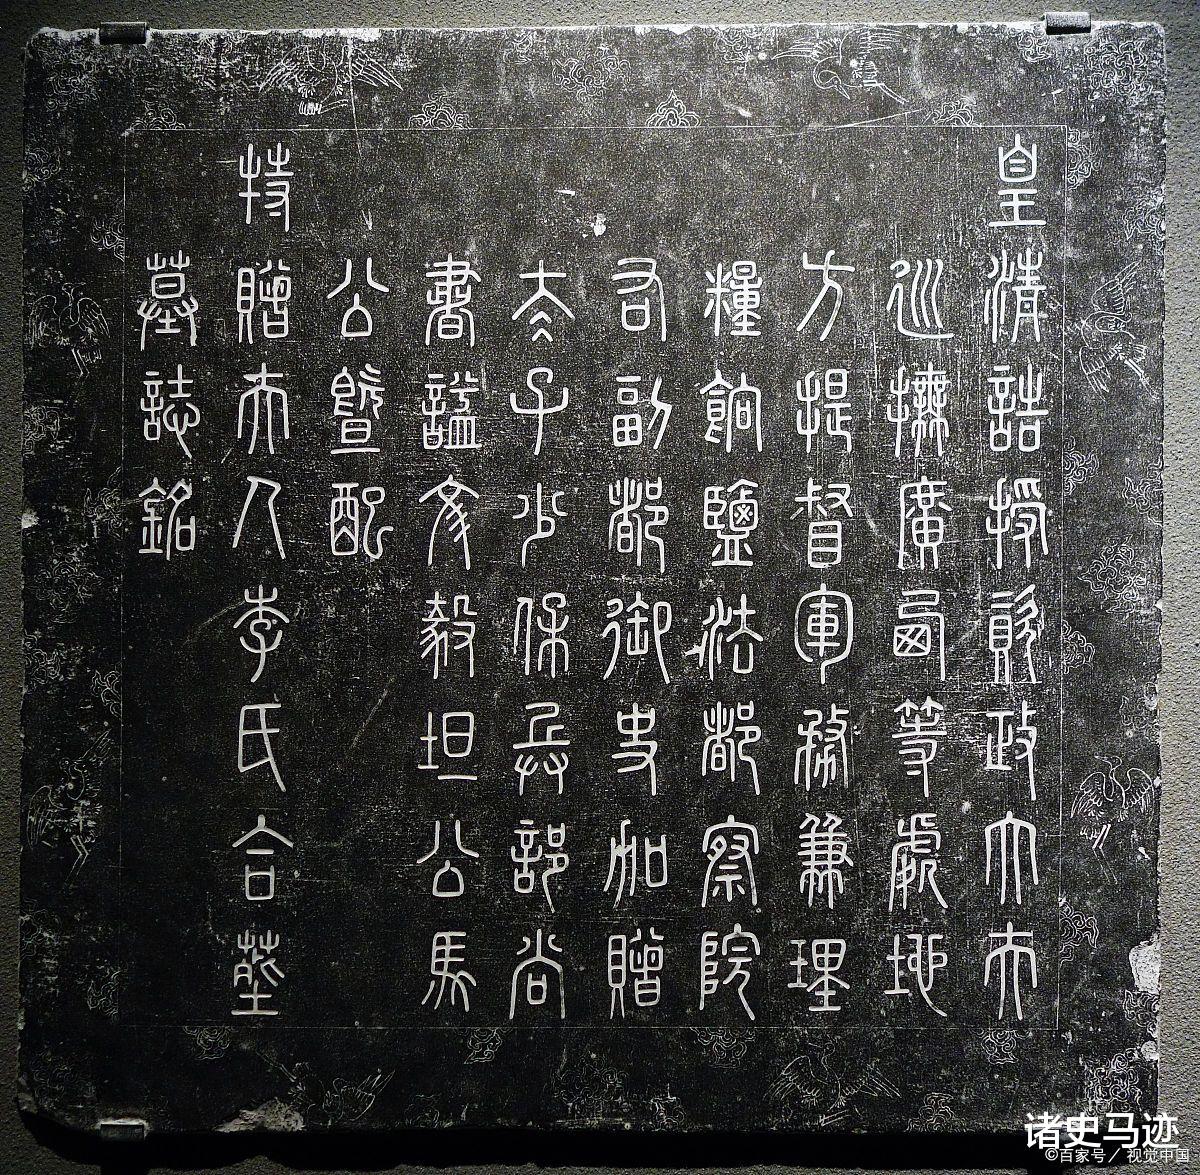 皇清誥授資政大夫
巡撫廣西等處地
方提督軍務兼理
糧餉鹽法都察院
右副都御史加贈
太子少保兵部尚
書諡文毅坦公馬
公暨配
特贈夫人李氏合葬
墓誌銘
诸史马迹
©百家号／视觉中国